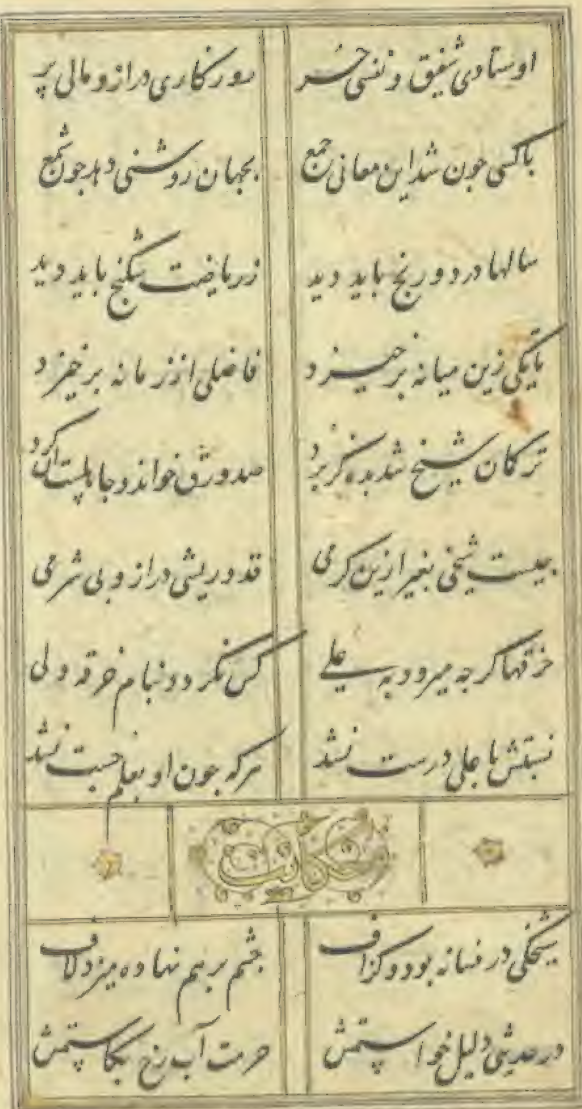 اوستادی شفیق و نفسی حر روزکاری دراز و مالی پر
باکسی جون شد این معانی جمع بجهان روشنی دهد جون شمع
سالها درد و رنج باید دید ز ریاضت شکنج باید دید
تا یکی زین میانه برخیزد فاضلی از زمانه برخیزد
ترکان شیخ شد بده کز برد صد ورق خواند و جاهلیست
جیست شیخی بغیر ازین کرمی قد و ریشی دراز و بی شرمی
خرقها کرجه میرود به علی کس نکردد بنام خرقه ولی
نسبتش با علی درست نشد هرکه جون او بعلم جست نشد
حکایت
شیخکی در فسانه بود و کزاف جشم برهم نهاده میزد لاف
در حدیثی دلیل خواستمش حرمت آب رخ بکاستمش